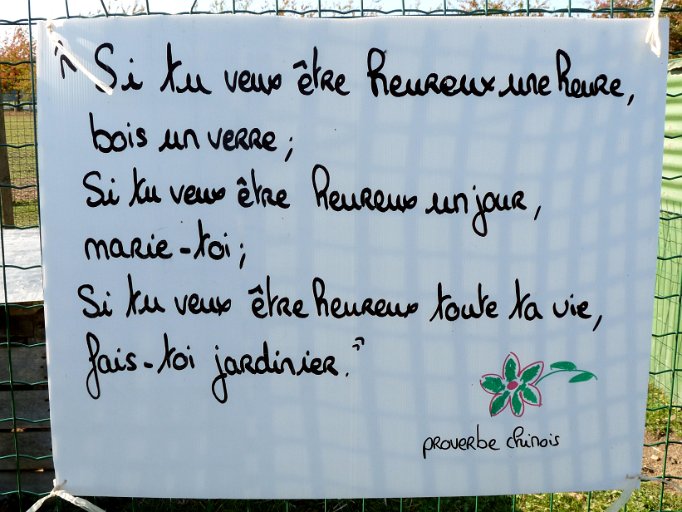 " Si tu veux être heureux une heure,
bois un verre ;
Si tu veux être heureux un jour,
marie-toi ;
Si tu veux être heureux toute ta vie,
fais-toi jardinier."
proverbe chinois